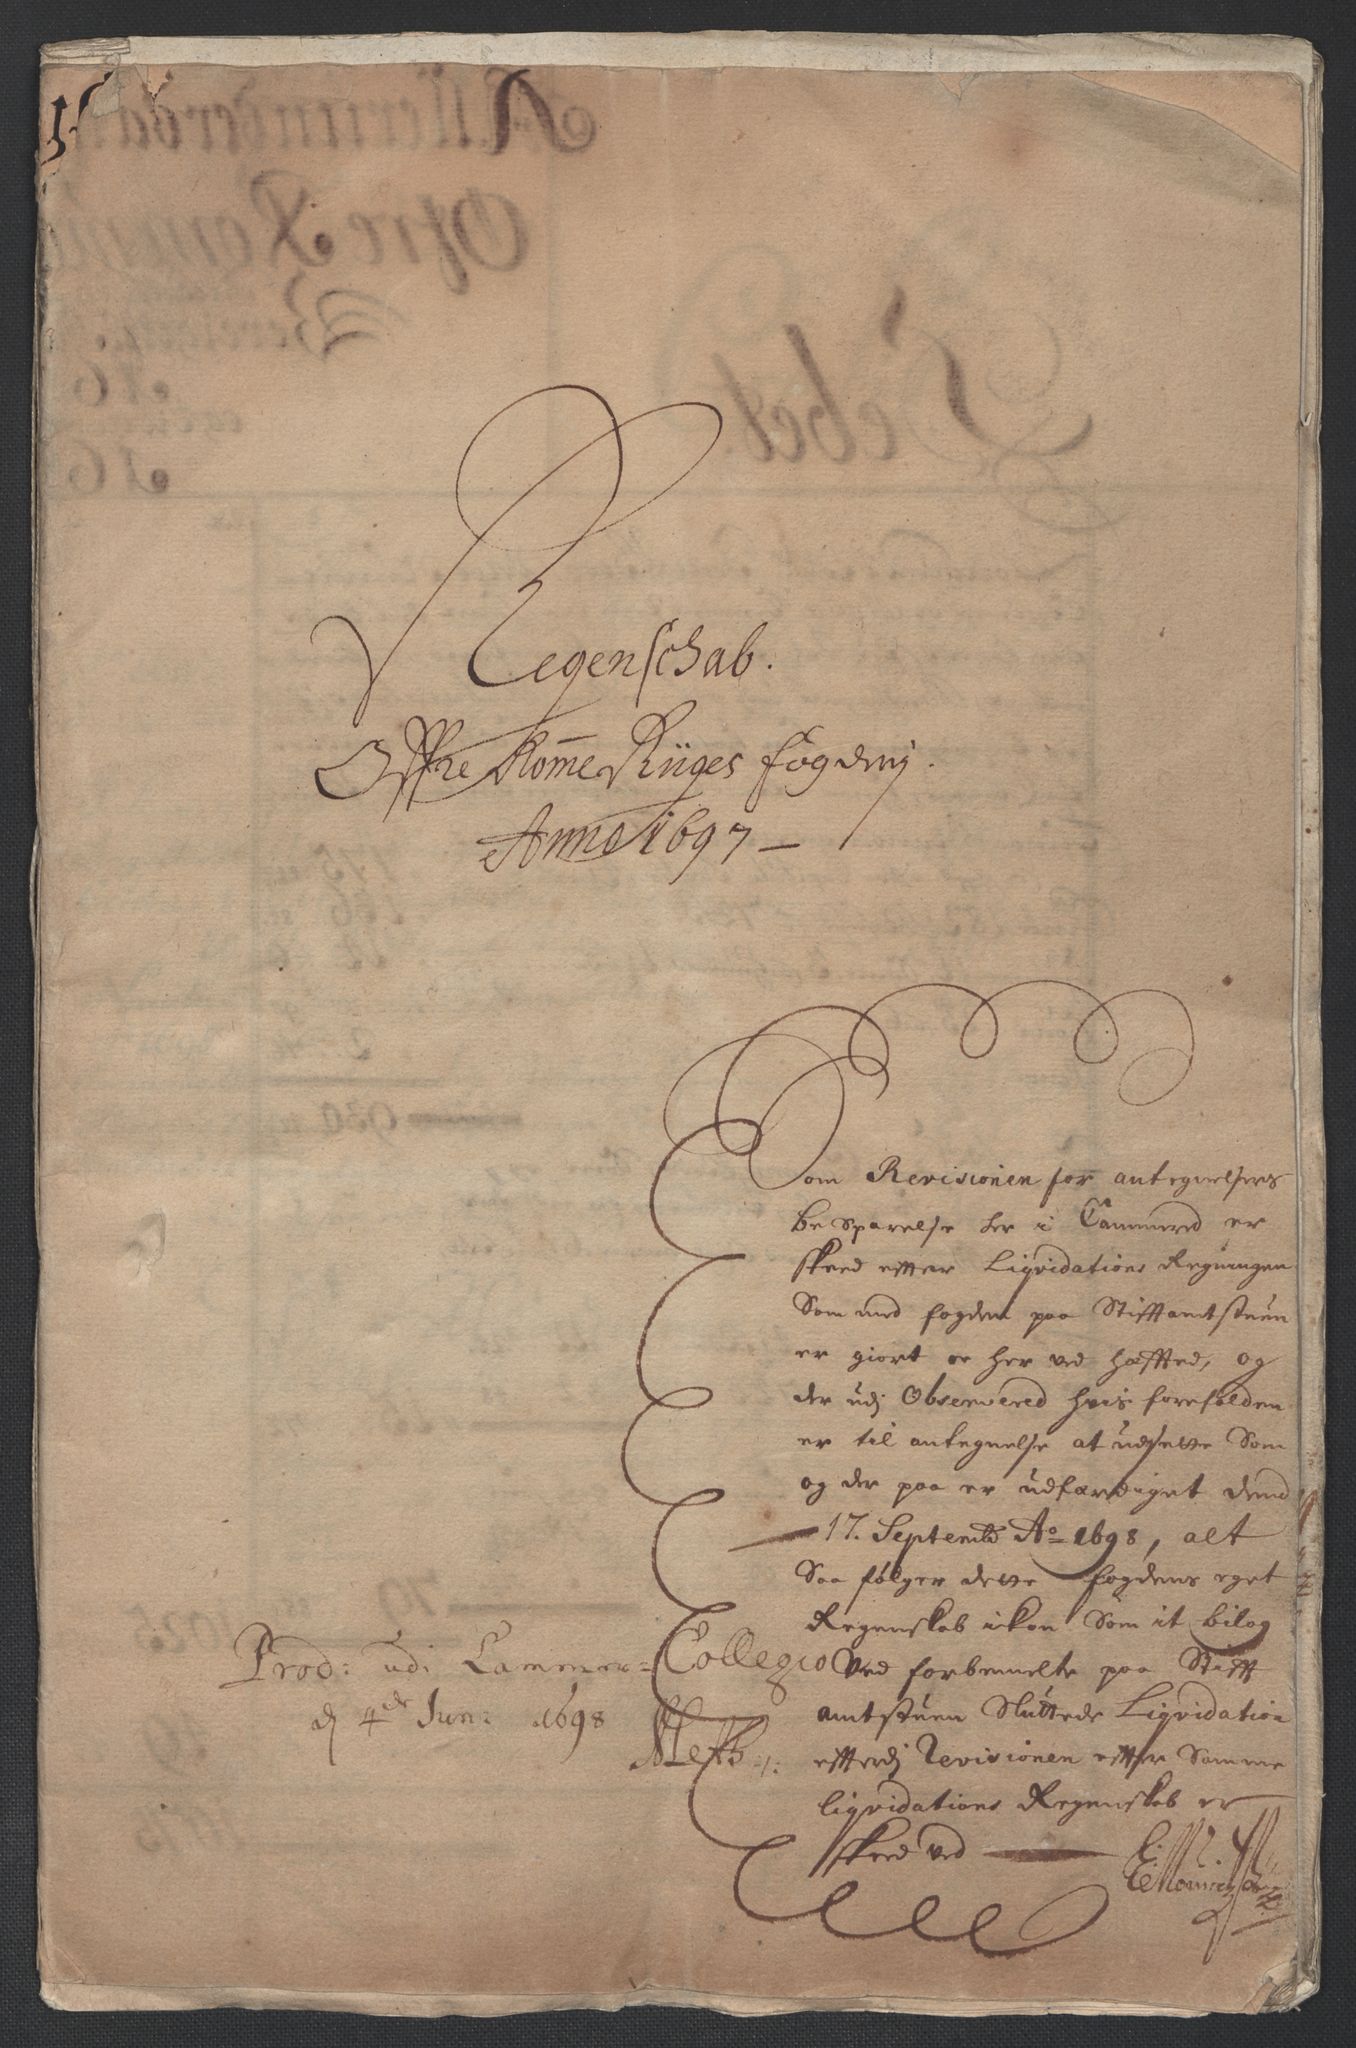 Regenschab.
Offre Rommeriiges fogderij.
Anno 1697
Som Revisionen for antegnelsers
besparelse her i Cammered er
skeed effter Liqvidations Regningen
Som med fogden paa Stifftamtstuen
er giort oc her ved hæffted, og
der udj Observered hvis forefalden
er til antegnelse at udsette Som
og der paa er udfærdiget dend
17. Septemb Ao 1698, alt
Saa følger dette fogdens eget
Regenskab ickon Som it bilag
Ved forbemelte paa Stifft
amtstuen Sluttede Liqvidation
effterdj Revisionen effter Samme
liqvidations Regenskab er
skeed ved
Prod: udi Cammer-Collegio
d 4de Jun: 1698